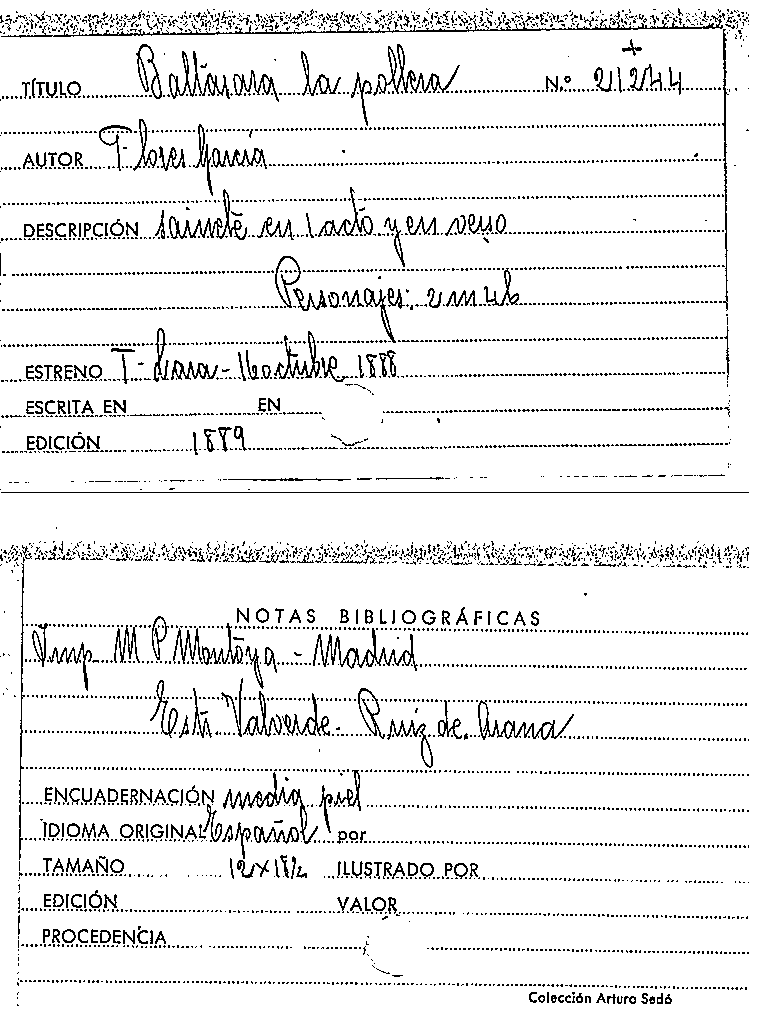 +
TÍTULO Baltasara la pollera N.º 21244
AUTOR F- Flores García
DESCRIPCIÓN sainete en 1 acto y en verso
Personajes: 2 m 4 h
ESTRENO T- Lara - 16 octubre 1888
ESCRITA EN EN
EDICIÓN 1889
NOTAS BIBLIOGRÁFICAS
Imp M P Montoya - Madrid
Estr Valverde - Ruiz de Arana
ENCUADERNACIÓN media piel
IDIOMA ORIGINAL Español por
TAMAÑO 12 x 18½ ILUSTRADO POR
EDICIÓN VALOR
PROCEDENCIA
Colección Arturo Sedó